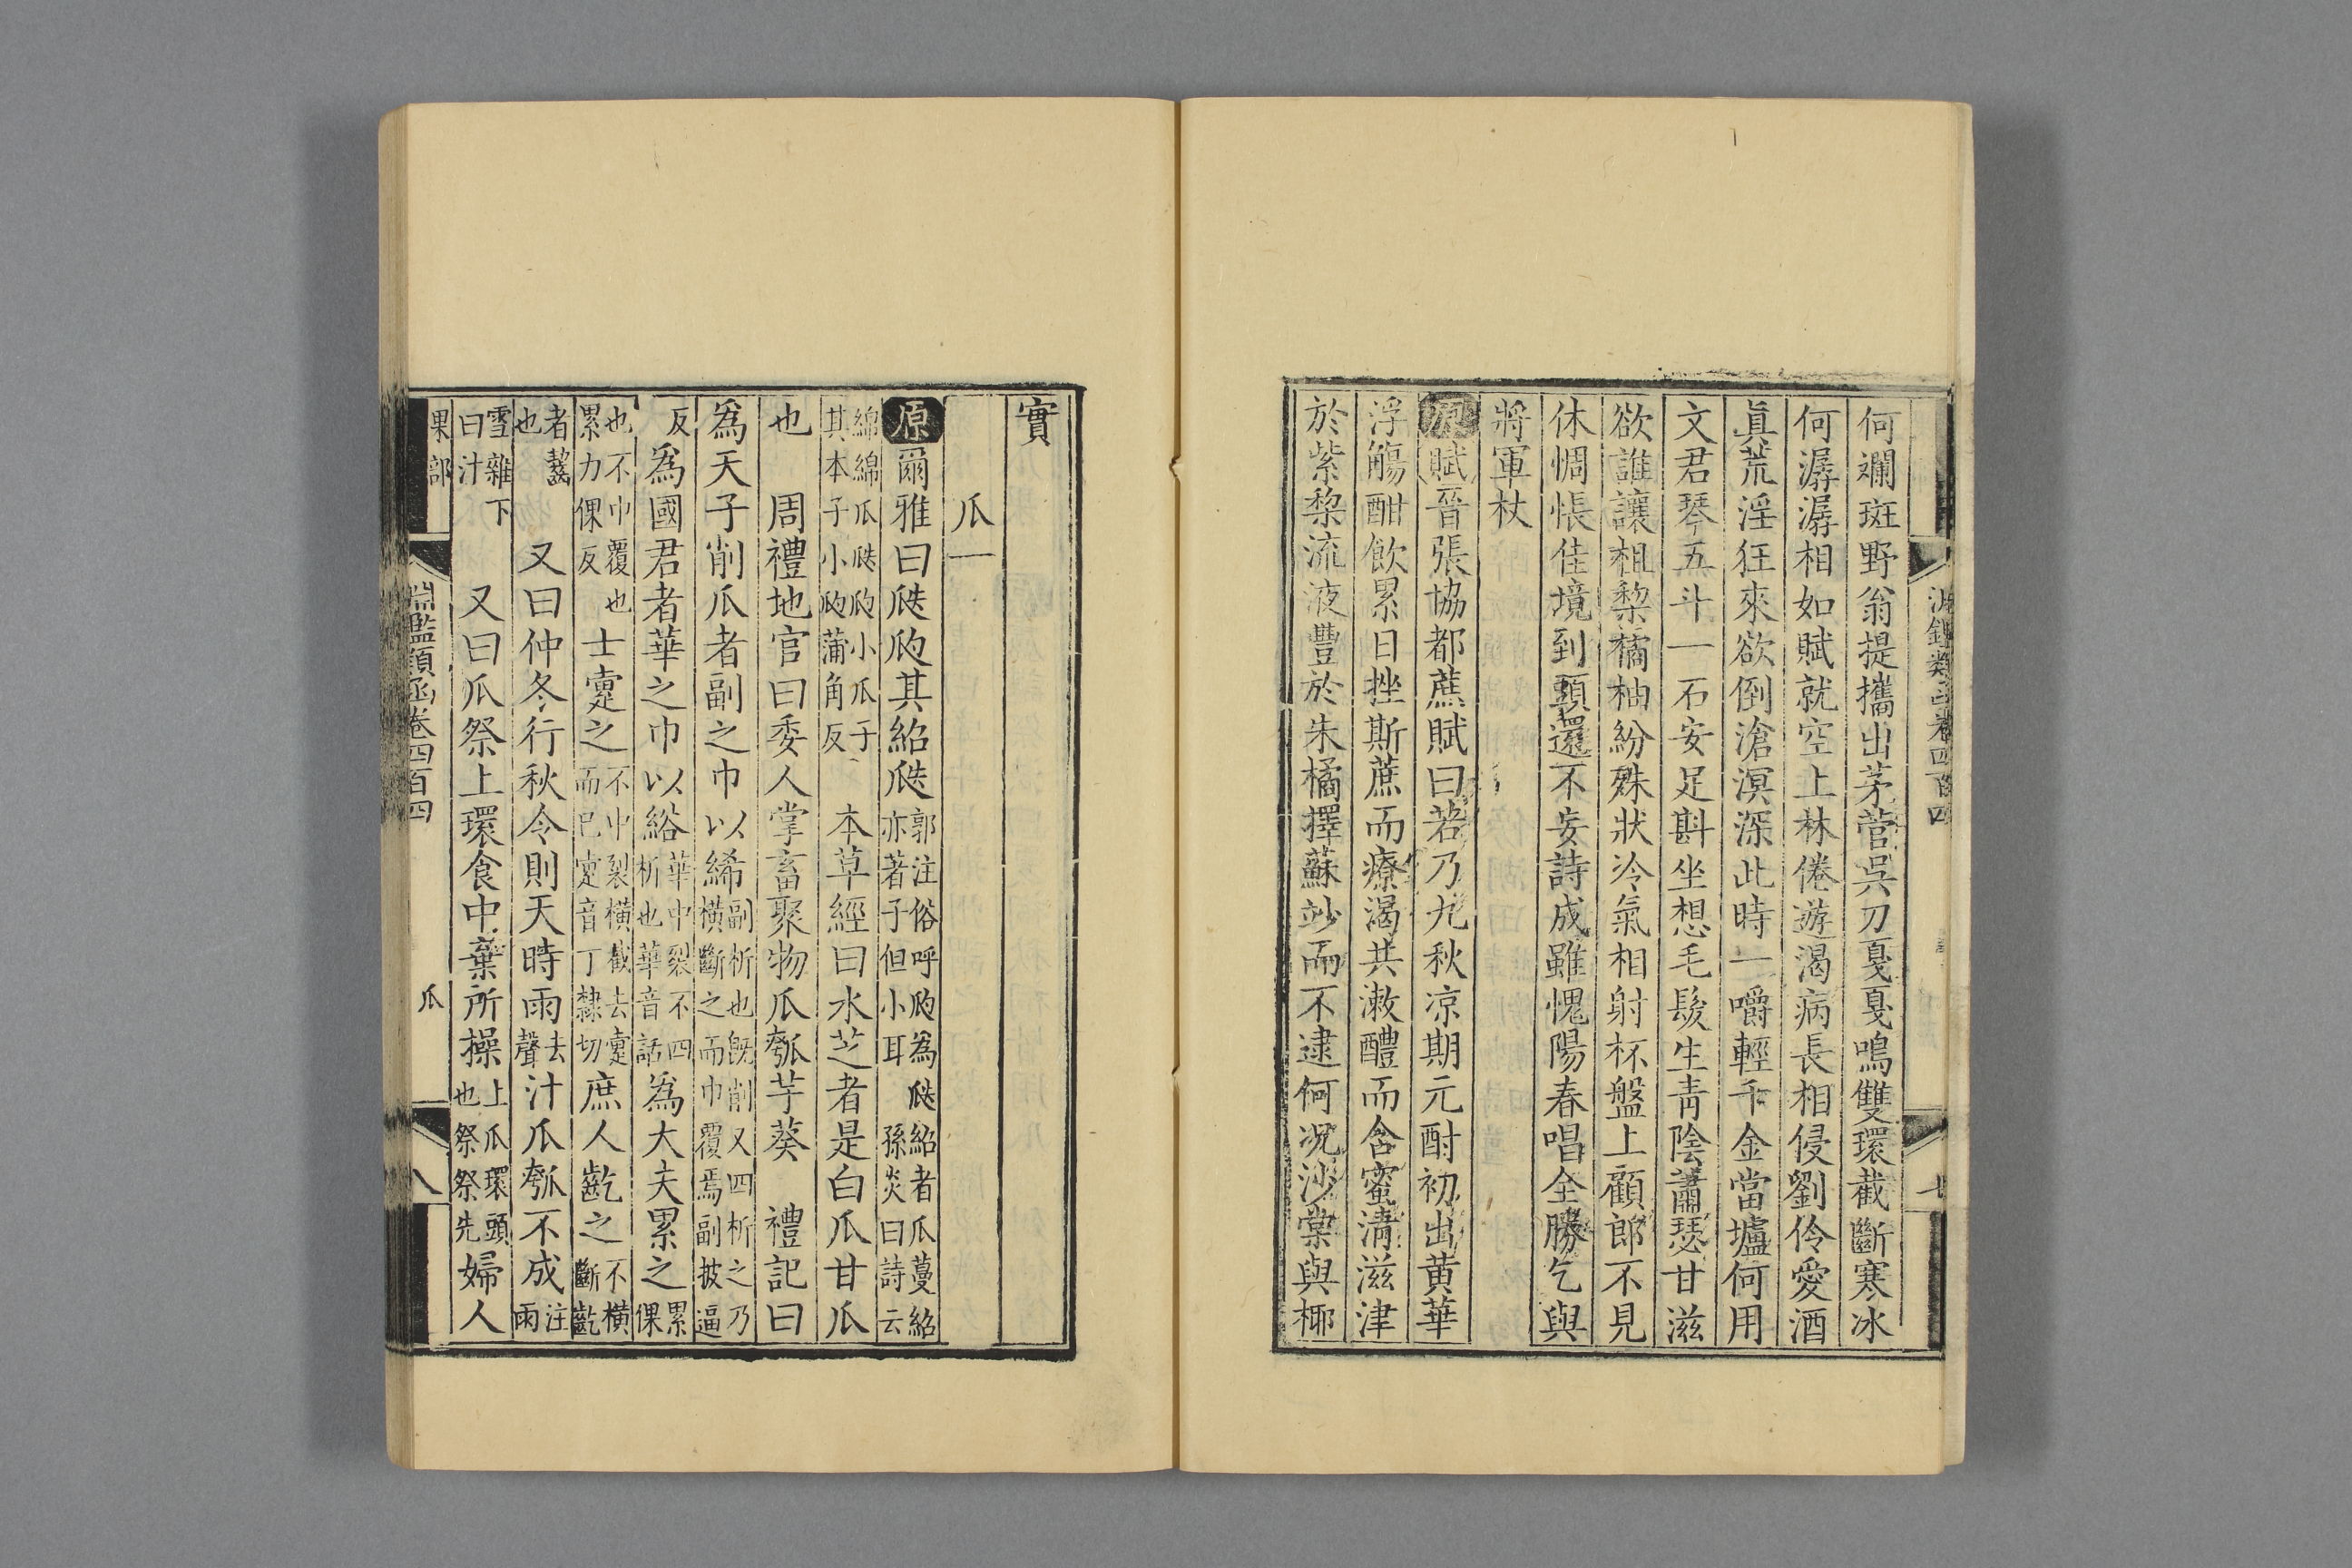 淵鑑類函卷四百四
七
何斕斑野翁提攜出茅菅吳刀戛戛鳴雙環截斷寒冰
何潺潺相如賦就空上林倦遊渴病長相侵劉伶愛酒
眞荒淫狂來欲倒滄溟深此時一嚼輕千金當壚何用
文君琴五斗一石安足斟坐想毛髮生靑陰蕭瑟甘滋
欲誰讓柤棃橘柚紛殊狀冷氣相射杯盤上顧郎不見
休惆悵佳境到頭還不妄詩成雖愧陽春唱全勝乞與
將軍杖
原賦晉張協都蔗賦曰若乃九秋凉期元酎初出黃華
浮觴酣飲累日挫斯蔗而療渴共漱醴而含蜜淸滋津
於紫棃流液豐於朱橘擇蘇妙而不逮何況沙棠與椰
實
瓜一
原爾雅曰瓞瓝其紹瓞郭注俗呼瓝爲瓞紹者瓜蔓紹亦著子但小耳 孫炎曰詩云
綿綿瓜瓞瓝小瓜子其本子小瓝蒲角反 本草經曰水芝者是白瓜甘瓜
也 周禮地官曰委人掌畜聚物瓜瓠芋葵 禮記曰
爲天子削瓜者副之巾以絺副析也旣削又四析之乃橫斷之而巾覆焉副披逼
反爲國君者華之巾以綌華中裂不四析也華音話爲大夫累之累倮
也不巾覆也累力倮反士疐之不中裂橫截去疐而已疐音丁隸切庶人齕之不橫斷齕
者也齧 又曰仲冬行秋令則天時雨去聲汁瓜瓠不成注雨
雪雜下曰汁 又曰瓜祭上環食中棄所操上瓜環頭也祭祭先婦人
果部
淵鑑類函卷四百四
瓜
八